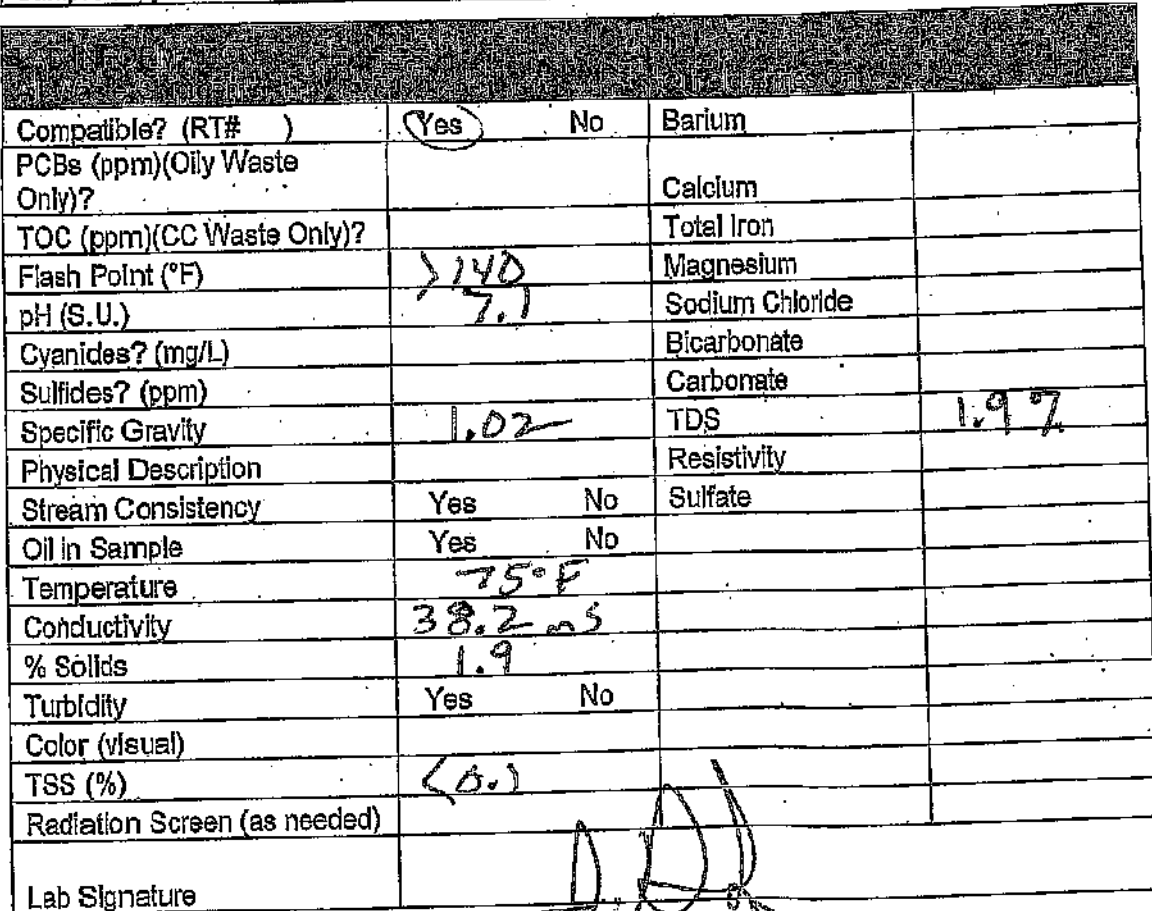 Compatible? (RT# ) Yes No Barium
PCBs (ppm)(Oily Waste
Only)? Calcium
TOC (ppm)(CC Waste Only)? Total Iron
Flash Point (°F) >140 Magnesium
pH (S.U.) 7.1 Sodium Chloride
Cyanides? (mg/L) Bicarbonate
Sulfides? (ppm) Carbonate
Specific Gravity 1.02 TDS 1.9%
Physical Description Resistivity
Stream Consistency Yes No Sulfate
Oil in Sample Yes No
Temperature 75°F
Conductivity 38.2 mS
% Solids 1.9
Turbidity Yes No
Color (visual)
TSS (%) <0.1
Radiation Screen (as needed)
Lab Signature